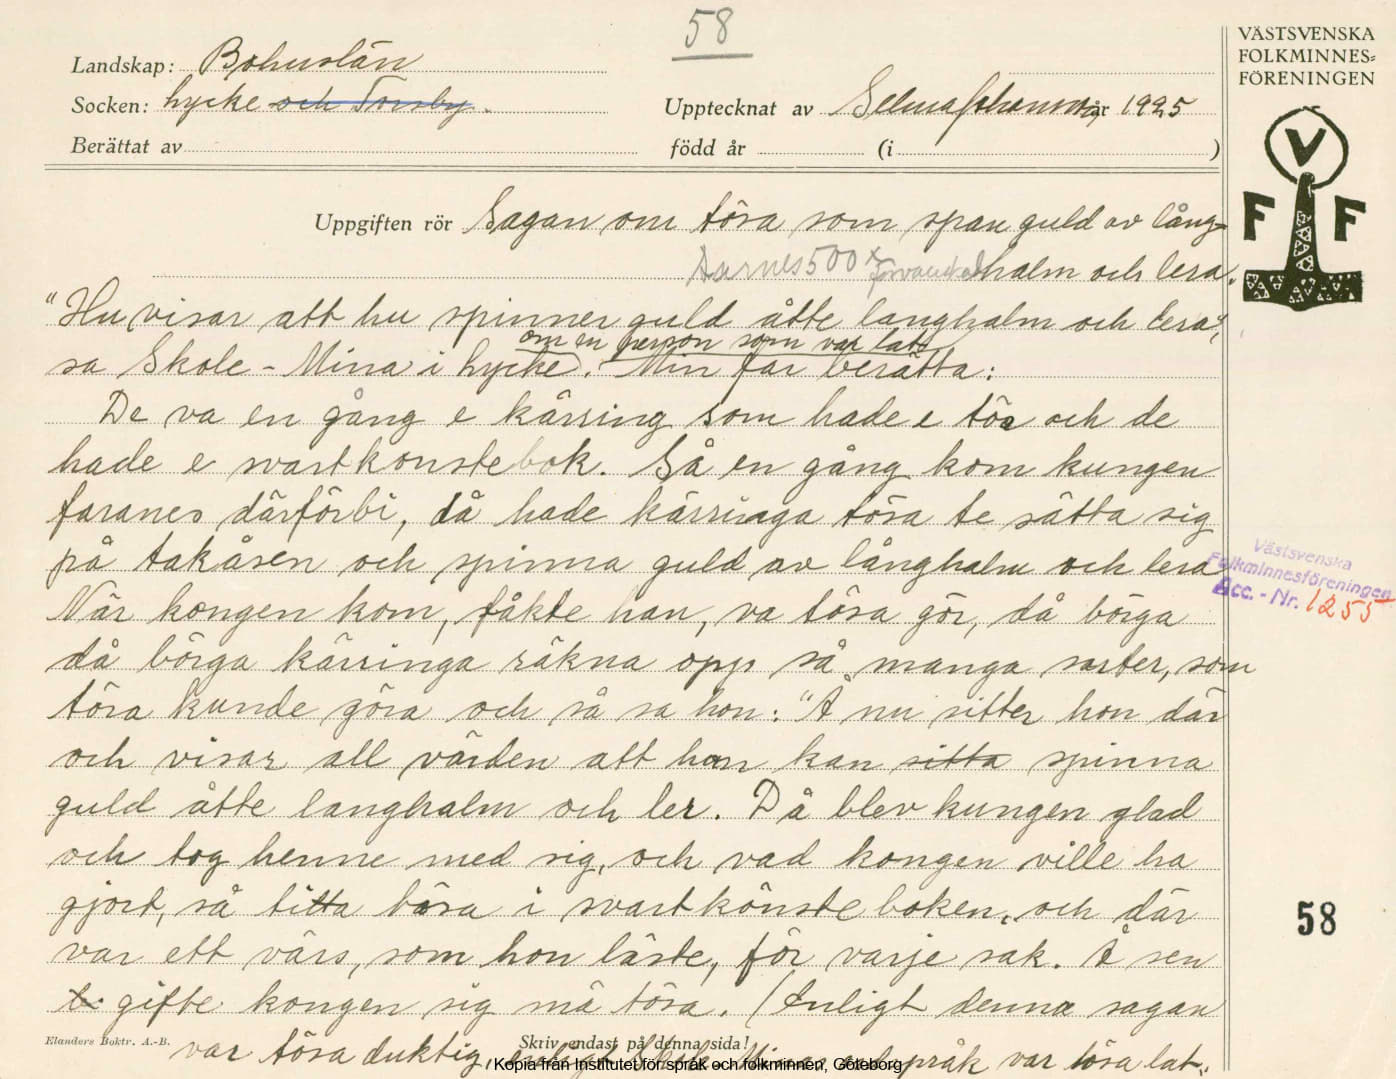 58
Landskap: Bohuslän
Socken: Lycke och Torsby.
Upptecknat av Selma Johansson, år 1925
Berättat av
född år (i )
VÄSTSVENSKA
FOLKMINNES=
FÖRENINGEN
V
F F
Uppgiften rör Sagan om töra som span guld av lång-
Aarnes 500 x halm och lera.
"Hu visar att hu spinner guld åtte langhalm och lera",
om en person som var lat
sa Skole-Mina i Lycke. Min far berätta:
De va en gång e kärring som hade e töa och de
hade e svartkonstebok. Så en gång kom kungen
faranes därförbi, då hade kärringa töra te sätta sig
på takåsen och spinna guld av långhalm och lera
När kongen kom, fåkte han, va töra gör, då börga
då börga kärringa räkna opp så manga sarter, som
töra kunde göra och så sa hon: "Å nu sitter hon där
och visar all värden att hon kan sitta spinna
guld åtte langhalm och ler. Då blev kungen glad
och tog henne med sig, och vad kongen ville ha
gjort, så titta töra i svartkönste boken, och där
var ett värs, som hon läste, för varje sak. Å sen
gifte kongen sig mä töra. (Enligt denna sagan
var tösa duktig, enligt Skole-Minas språk var tösa lat.
Elanders Boktr. A.-B.
Skriv endast på denna sida!
Kopia från Institutet för språk och folkminnen, Göteborg
Västsvenska
Folkminnesföreningen
Acc.-Nr. 1255
58